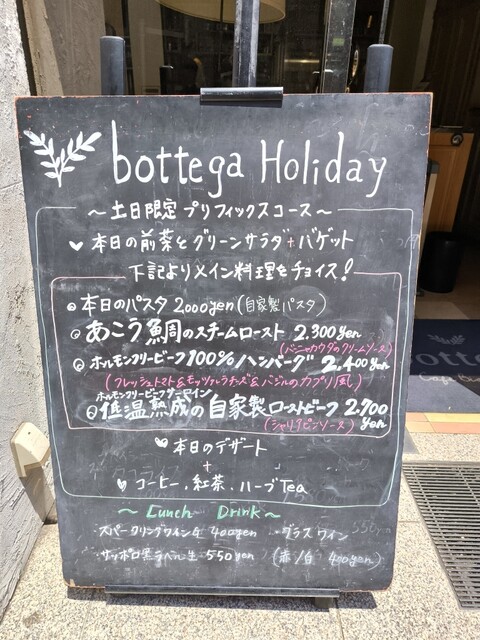 bottega Holiday
～土日限定 プリフィックスコース～
本日の前菜とグリーンサラダ+バゲット
下記よりメイン料理をチョイス!
本日のパスタ 2000yen(自家製パスタ)
あこう鯛のスチームロースト 2.300yen
(バーニャカウダのクリームソース)
ホルモンフリービーフ100%ハンバーグ 2.400yen
(フレッシュトマト&モッツァレラチーズ&バジルのカプリ風)
ホルモンフリービーフサーロイン
低温熟成の自家製ローストビーフ 2.700yen
(シャリアピンソース)
本日のデザート
+
コーヒー、紅茶、ハーブTea
～Lunch Drink～
・スパークリングワイン 400yen ・グラスワイン
・サッポロ黒ラベル生 550yen (赤/白 400yen)